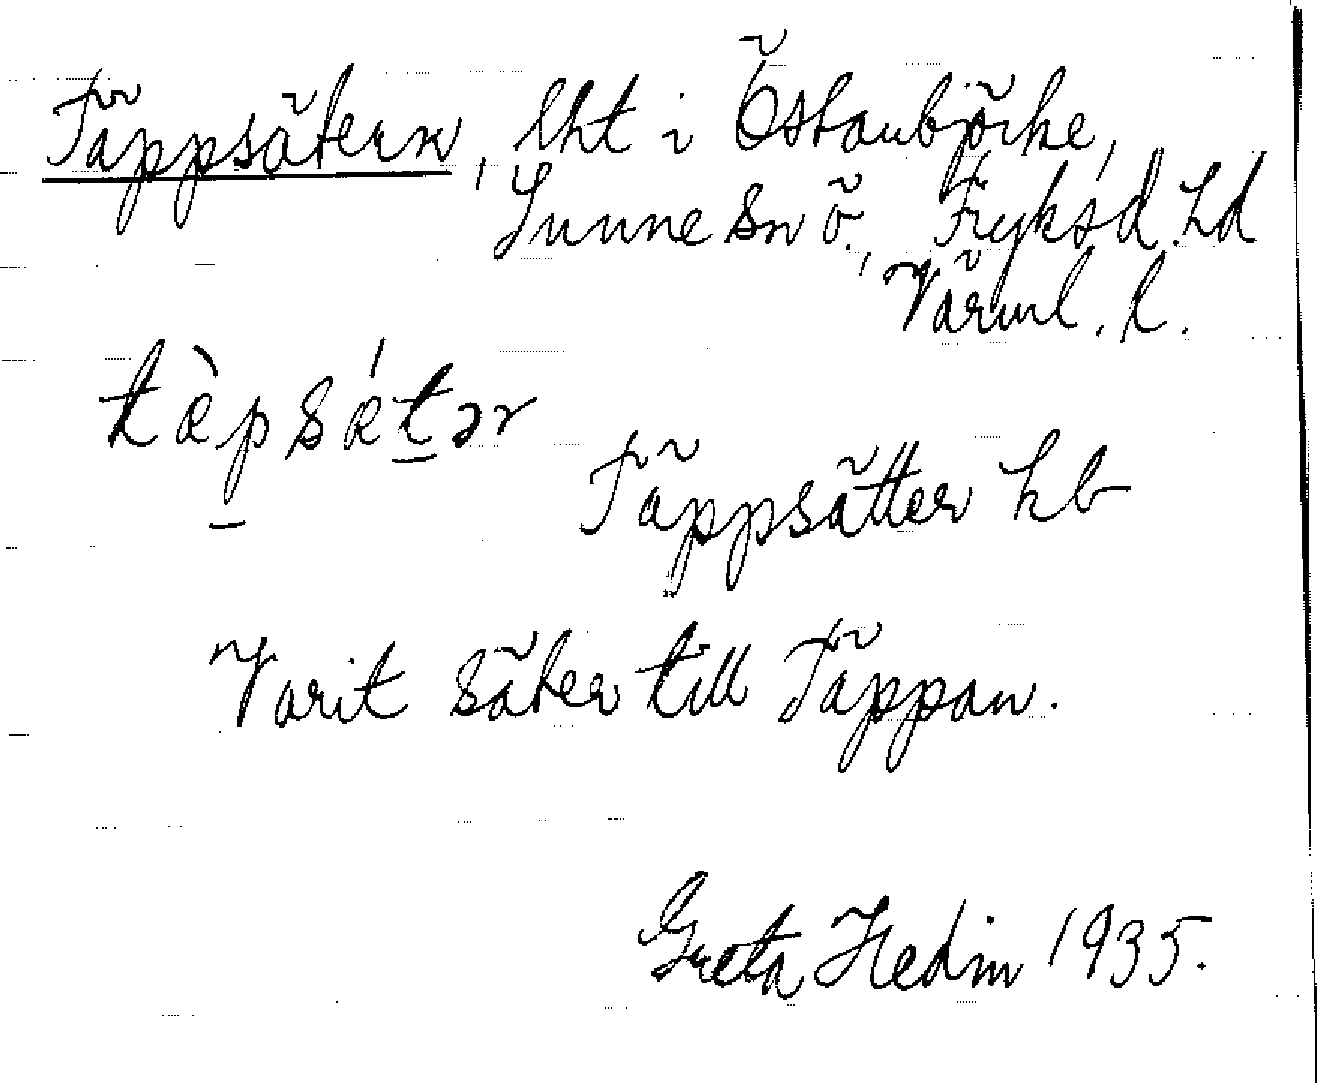 Täppsätern, lht i Östanbjörke,
Sunne sn ö., Fryksd. hd
Värml. l.
tæ̀psǽtər
Täppsätter hb
Varit säter till Täppan.
Greta Hedin 1935.